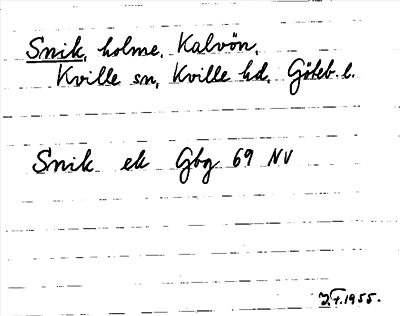 Snik, holme, Kalvön,
Kville sn, Kville hd, Göteb. l.
Snik ek Gbg 69 NV
1955.